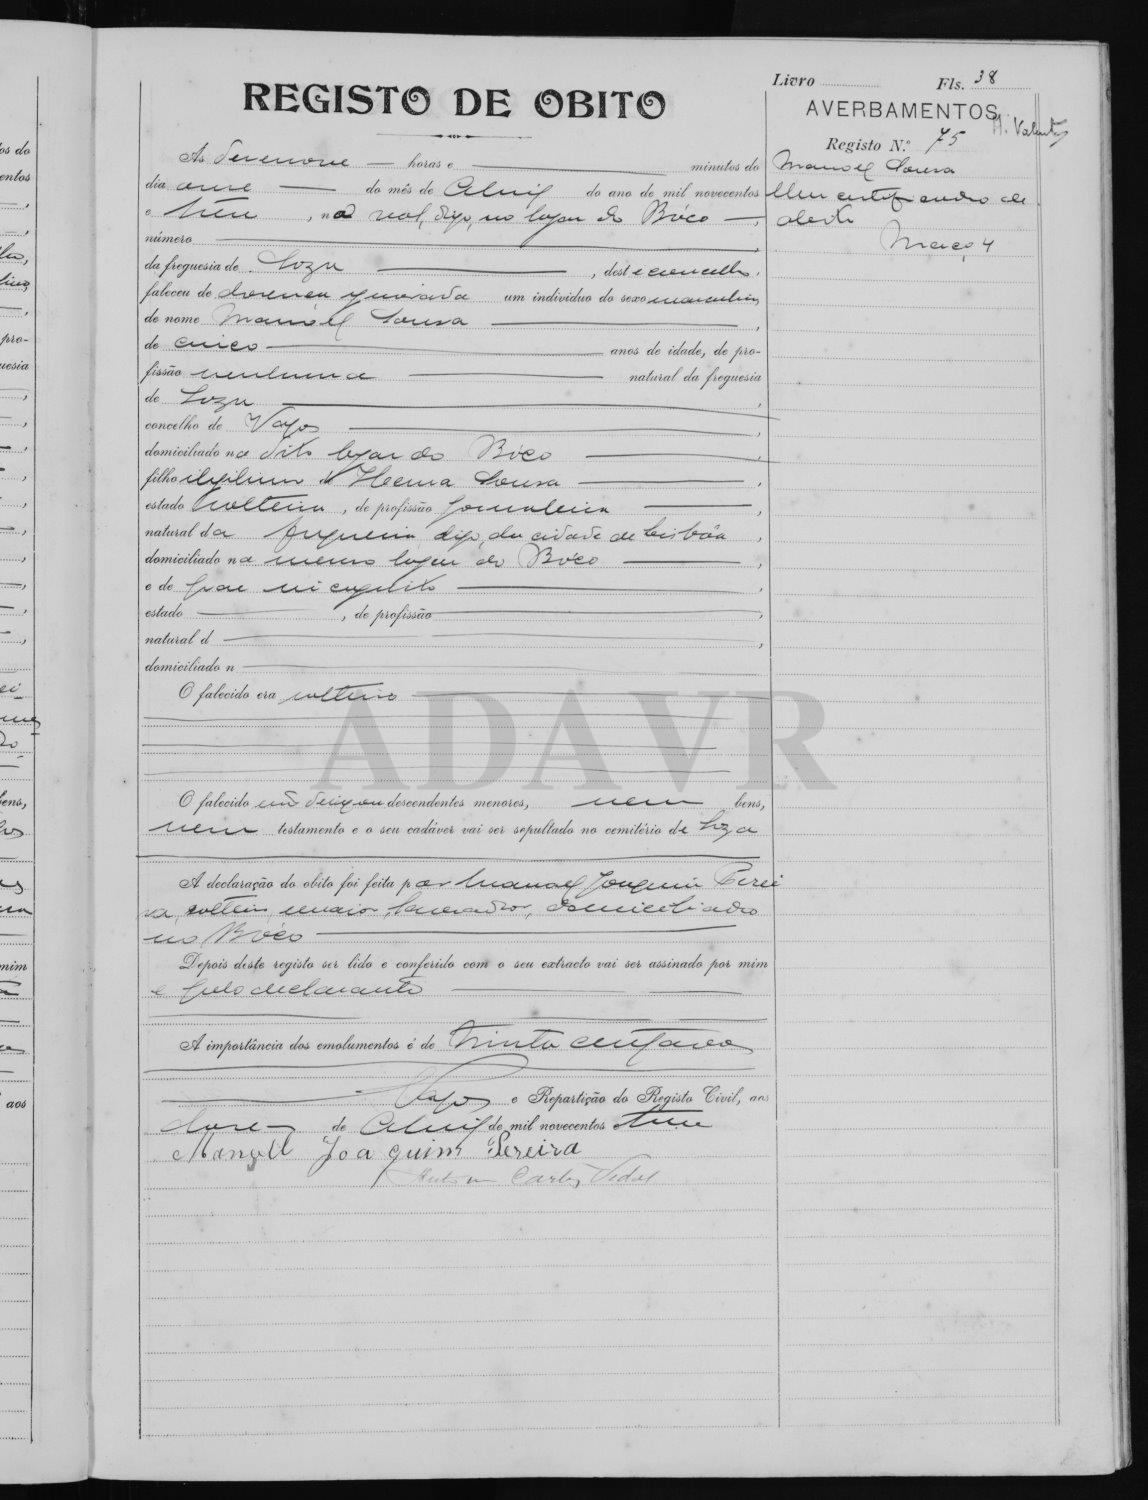 Livro Fls. 38
REGISTO DE OBITO
AVERBAMENTOS
Registo N.º 75
Às dezenove horas e minutos do
dia onze do mês de Abril do ano de mil novecentos
e treze, na real, digo, no lugar do Bôco,
número
da freguesia de Soza, deste concelho,
faleceu de doença ignorada um individuo do sexo masculino,
de nome Manoel Sousa,
de cinco anos de idade, de pro-
fissão nenhuma natural da freguesia
de Soza,
concelho de Vagos,
domiciliado no dito lugar do Bôco,
filho illegitimo de Sousa,
estado solteira, de profissão jornaleira,
natural da freguesia digo, da cidade de Lisbôa,
domiciliada no mesmo lugar do Bôco,
e de pae incognito,
estado, de profissão,
natural d,
domiciliado n
O falecido era solteiro
O falecido não deixou descendentes menores, nem bens,
nem testamento e o seu cadáver vai ser sepultado no cemitério de Soza
A declaração do obito foi feita por Manoel Joaquim Perei
ra, solteiro, maior, lavrador, domiciliado
no Bôco
Depois deste registo ser lido e conferido com o seu extracto vai ser assinado por mim
e pelo declarante
A importância dos emolumentos é de trinta centavos
Vagos e Repartição do Registo Civil, aos
doze de Abril de mil novecentos e treze
Manoell Joaquim Pereira
Antonio Carlos Vidal
Manoel Sousa
Um certificado de
obito
Março, 4
ADAVR